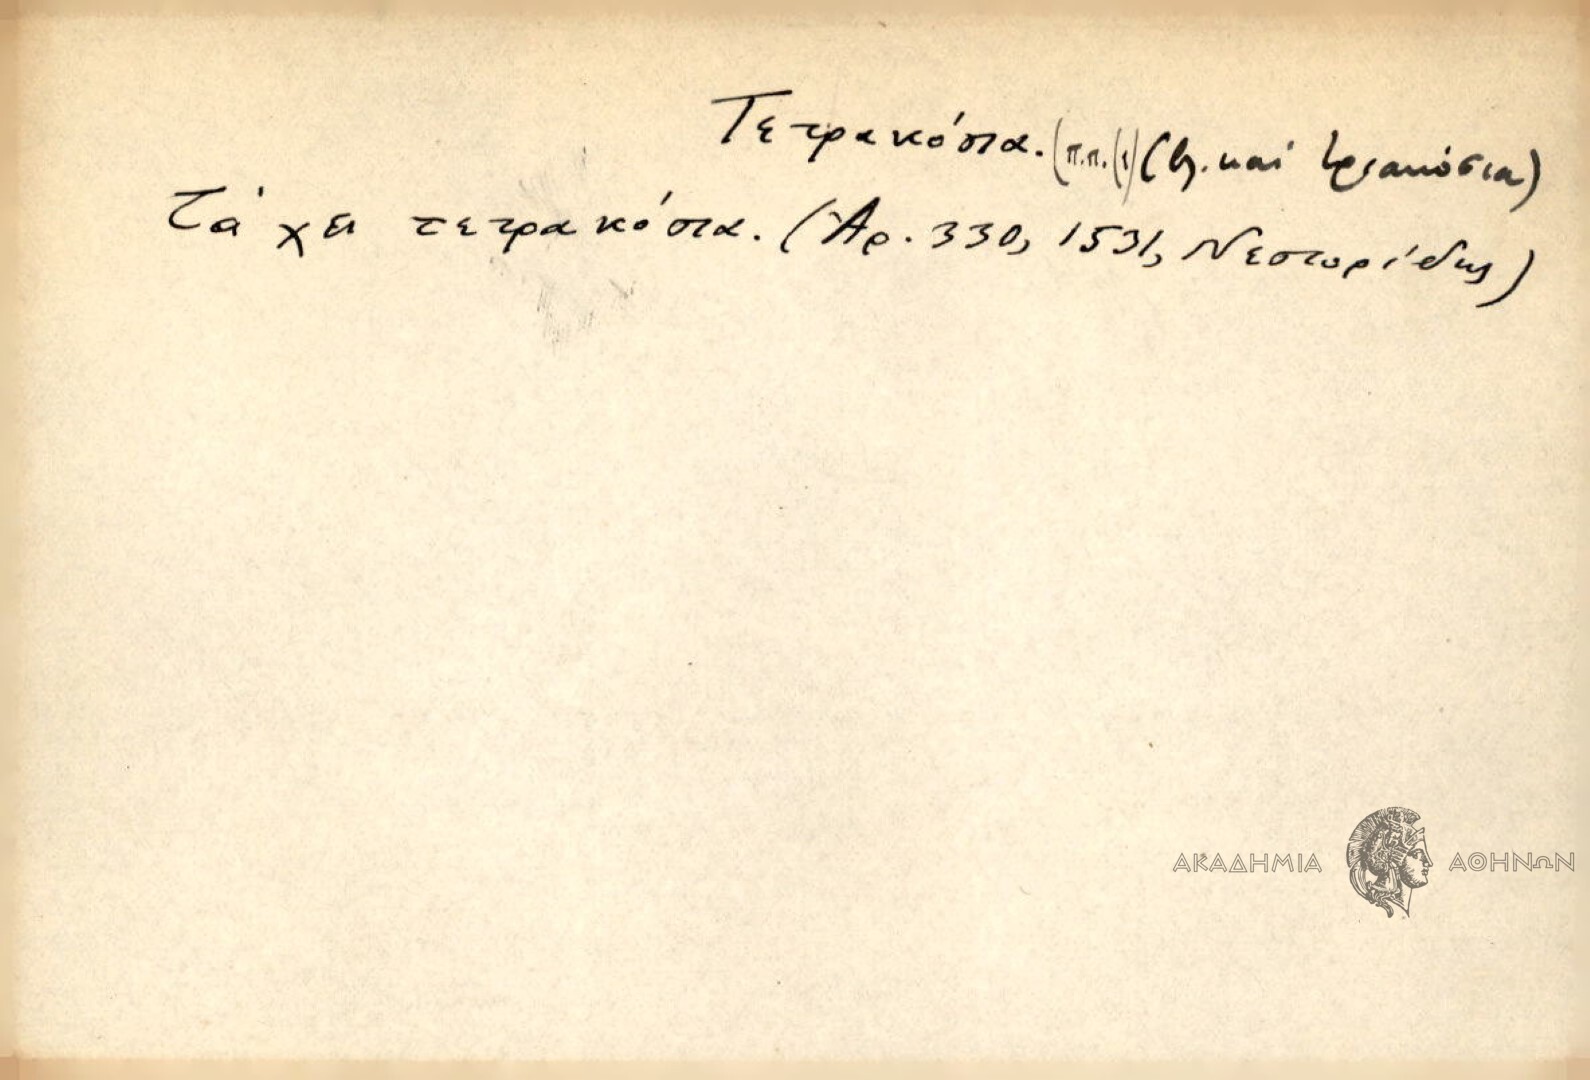 Τετρακόσια. (π.π.(1) (βλ. καί τρακόσια)
Τά 'χει τετρακόσια. (Ἀρ. 330, 1531, Νεστορίδης)
ΑΚΑΔΗΜΙΑ ΑΘΗΝΩΝ